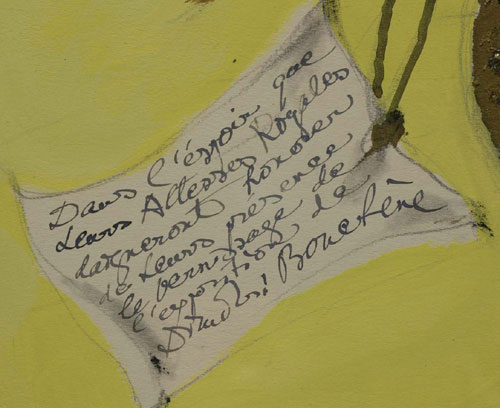 Dans l'espoir que
Leurs Altesses Royales
daigneront honorer
de leurs présence
le vernissage de
l'exposition de
Dimitri Bouchène